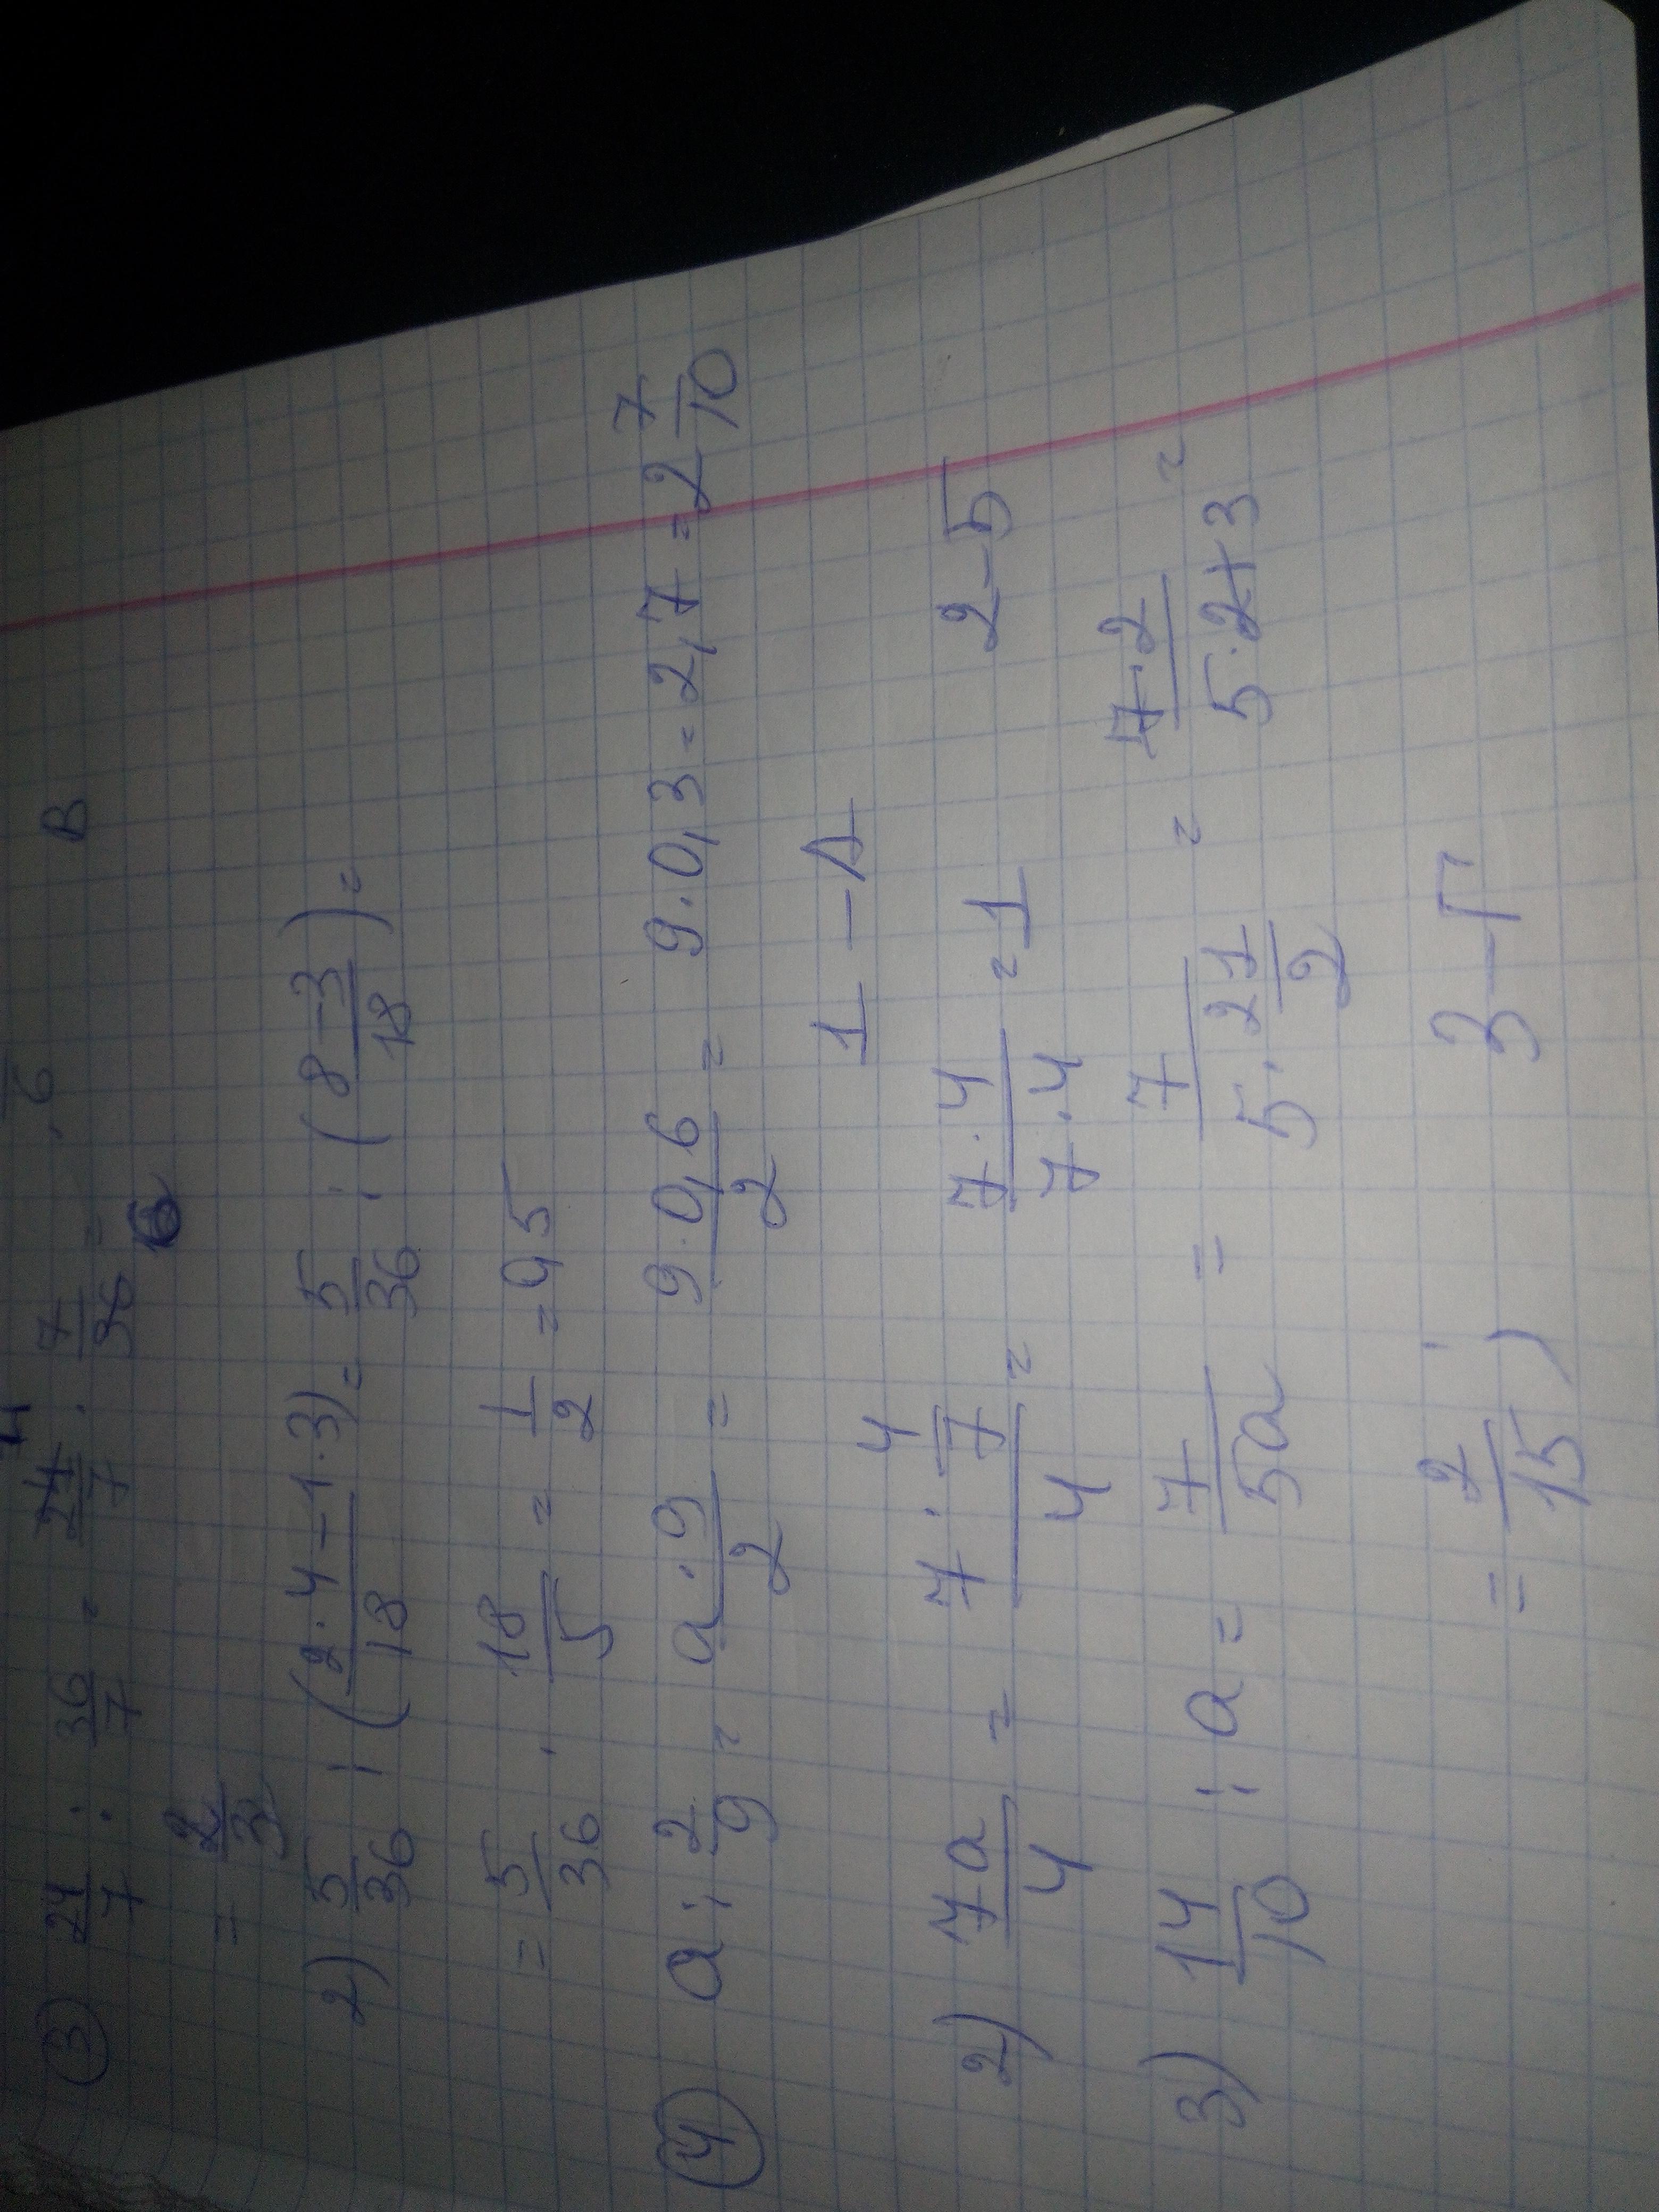 ③ 24/7 : 36/7 = 24/7 · 7/36 =
= 2/3
2) 5/36 : (2·4-1·3)/18 = 5/36 : (8-3/18) =
= 5/36 · 18/5 = 1/2 = 95
④ a : 2/9 = a·9/2 = 9·0,6/2 = 9·0,3 = 2,7 = 2 7/10
1 – Д
2) 7a/4 = 7·4/7/4 = 7·4/7·4 = 1 2–5
3) 14/10 : a = 7/5a = 7/5·21/2 = 7·2/5·2+3 =
= 2/15 ; 3–Г